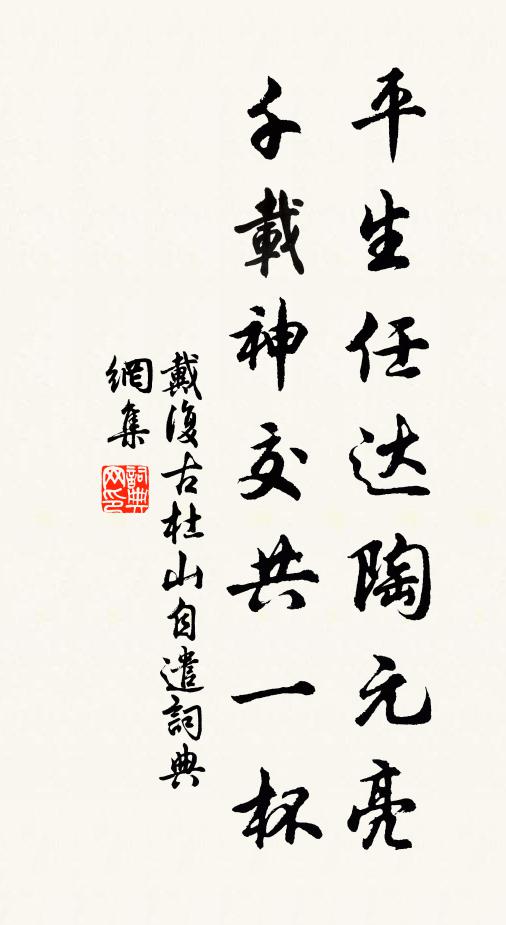 平生任达陶元亮
千載神交共一杯
戴復古杜山自遣詞典
網集
詞典
网印